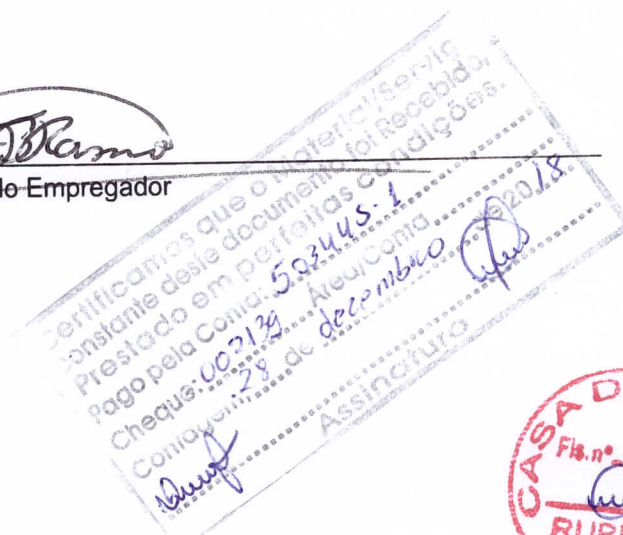 do Empregador
Certificamos que o Material/Serviço
constante deste documento foi Recebido,
Prestado em perfeitas condições.
Pago pela Conta: 503445-1
Cheque: 002139 Área/Conta
Contagem, 28 de decembro de 2018
Assinatura
CASA D
Fls.nº
RUBR